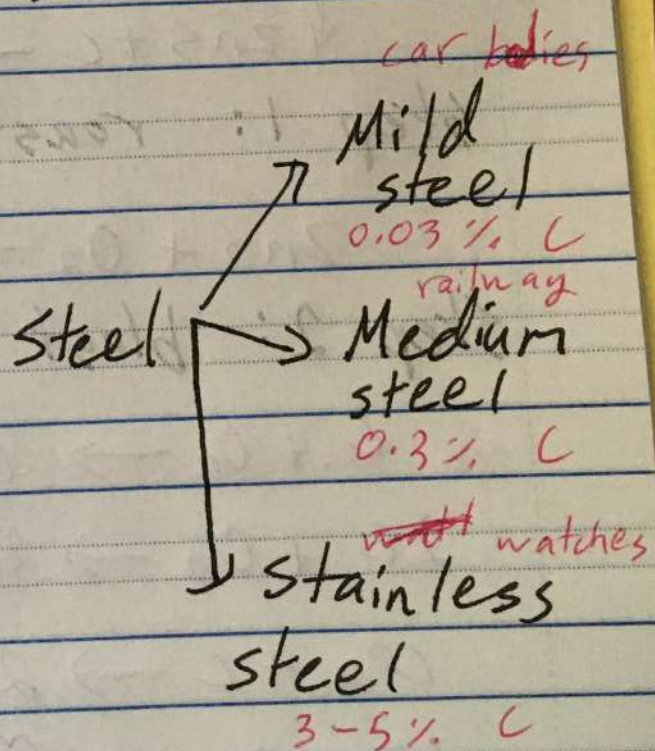 car bodies
Mild
steel
0.03 % C
railway
Steel
Medium
steel
0.3 % C
watches
Stainless
steel
3-5% C